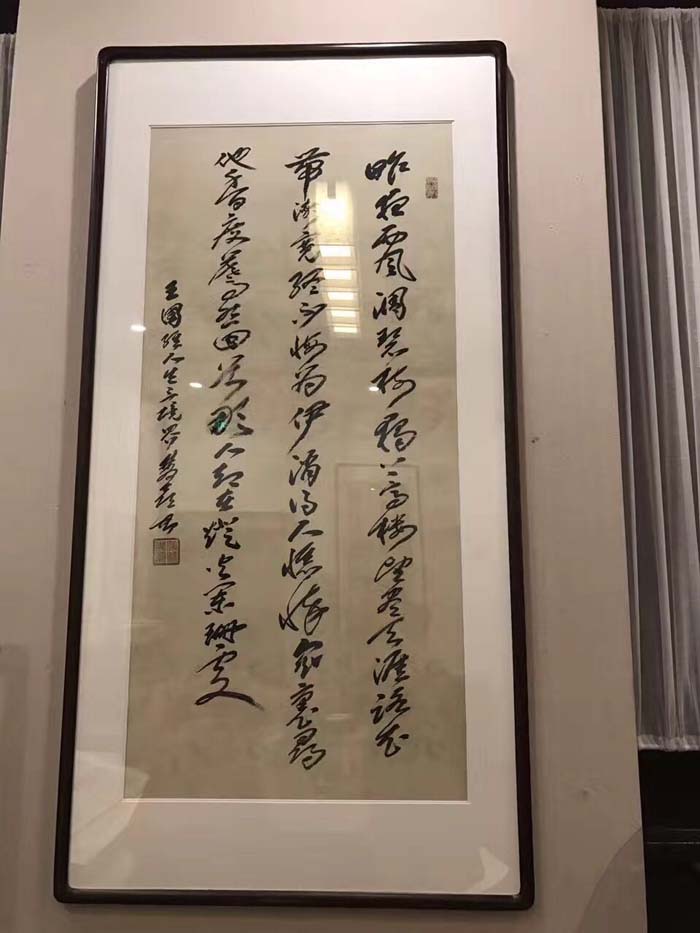 昨夜西風凋碧樹獨上高楼望盡天涯路衣
帶漸寬終不悔為伊消得人憔悴衆裏尋
他千百度驀然回首那人却在燈火闌珊處
王國維人生三境界